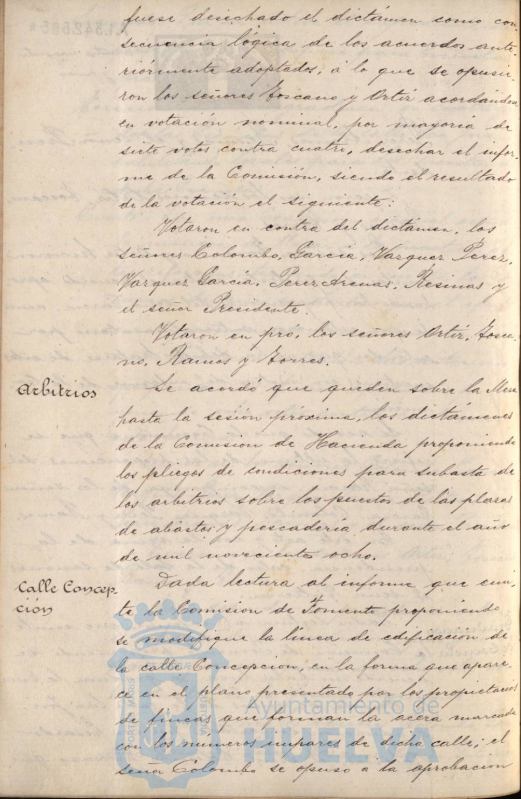 fuese desechado el dictámen como con
secuencia lógica de los acuerdos ante
riormente adoptados, á lo que se opusie
ron los señores Toscano y Ortiz acordándose
en votación nominal, por mayoria de
siete votos contra cuatro, desechar el infor
me de la Comisión, siendo el resultado
de la votación el siguiente:
Votaron en contra del dictámen, los
señores Colombo, Garcia, Vazquez Perez,
Vazquez Garcia, Perez, Arenas, Resinas y
el señor Presidente.
Votaron en pró, los señores Ortiz, Tosca
no, Ramos y Torres.
Arbitrios
Se acordó que queden sobre la Mesa
hasta la sesión próxima, los dictamenes
de la Comision de Hacienda proponiendo
los pliegos de condiciones para subasta de
los arbitrios sobre los puestos de las plazas
de abastos y pescadería durante el año
de mil novecientos ocho.
Calle Concep
ción
Dada lectura al informe que emi
te la Comision de Fomento proponiendo
se modifique la línea de edificación de
la calle Concepcion, en la forma que apare
ce en el plano presentado por los propietarios
de fincas que forman la acera marcada
con los números impares de dicha calle; el
señor Colombo se opuso á la aprobacion
Ayuntamiento de
HUELVA